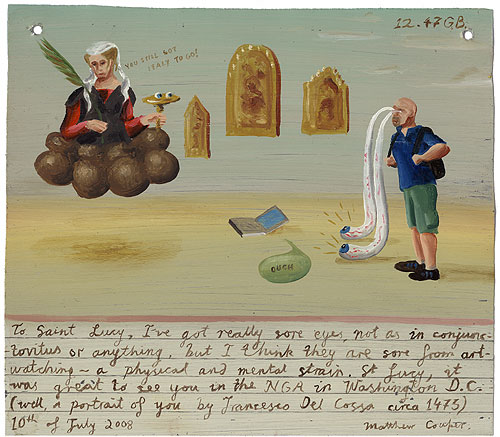 12.47 GB.
YOU STILL GOT
LEALY TO GO!
OUCH
To Saint Lucy, I've got really sore eyes, not as in conjunc-
tovitus or anything, but I think they are sore from art-
watching – a physical and mental strain. St Lucy, it
was great to see you in the NGA in Washington D.C.
(well, a portrait of you by Francesco Del Cossa circa 1475)
10th of July 2008
Matthew Couper.